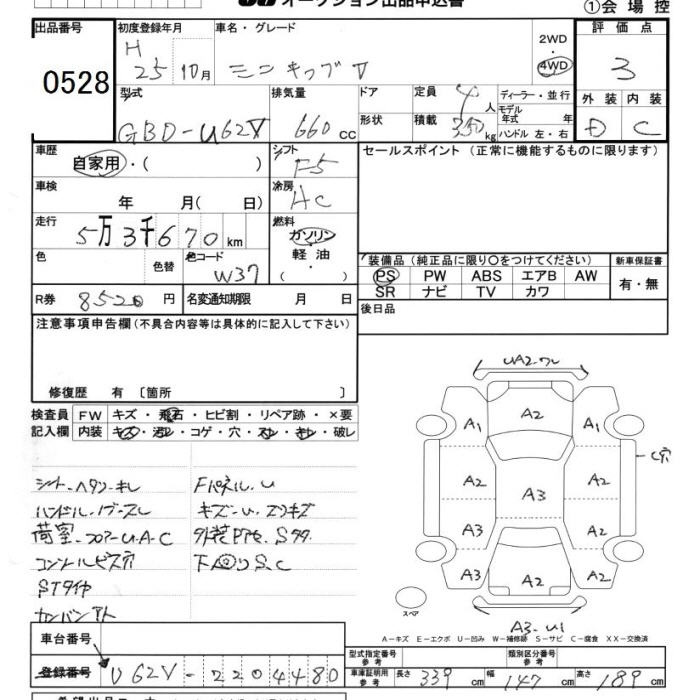 オークション出品申込書
①会場控
出品番号
0528
初度登録年月
H
25 年 10月
車名・グレード
ミニキャブV
2WD
・
4WD
評価点
3
型式
GBD-U62V
排気量
660 cc
ドア
形状
定員 4 人
積載 350 kg
ディーラー・並行
モデル
年式 年
ハンドル 左・右
外装 内装
D C
車歴
自家用・( )
シフト
F5
セールスポイント (正常に機能するものに限ります)
車検
年 月( 日)
冷房
AC
走行
5万3千670 km
燃料
ガソリン
軽油
( )
色
色替
色コード
W37
装備品 (純正品に限り○をつけてください)
新車保証書
PS PW ABS エアB AW
SR ナビ TV カワ
有・無
R券 8520 円
名変通知期限 月 日
後日品
注意事項申告欄 (不具合内容等は具体的に記入して下さい)
修復歴 有 〔箇所 〕
検査員
記入欄
FW キズ・飛石・ヒビ割・リペア跡・×要
内装 キズ・汚レ・コゲ・穴・スレ・キレ・破レ
シート・ヘタリ・キレ
ハンドル・ノブ・スレ
荷室・フロアーU・A・C
コンソールビス穴
STタイヤ
カンバンアト
Fパネル・U
キズ・U・エクボ
下廻りS.C
UA2・ワレ
A1 A2 A1
A2 A3 A2
A3 A2
A3 A2 A2
A3・U1
スペア
A-キズ E-エクボ U-凹み W-補修跡 S-サビ C-腐食 XX-交換済
車台番号
登録番号
U62V-2204480
型式指定番号
参考
類別区分番号
参考
車車証明用
参考
長さ 339 cm 幅 147 cm 高さ 189 cm